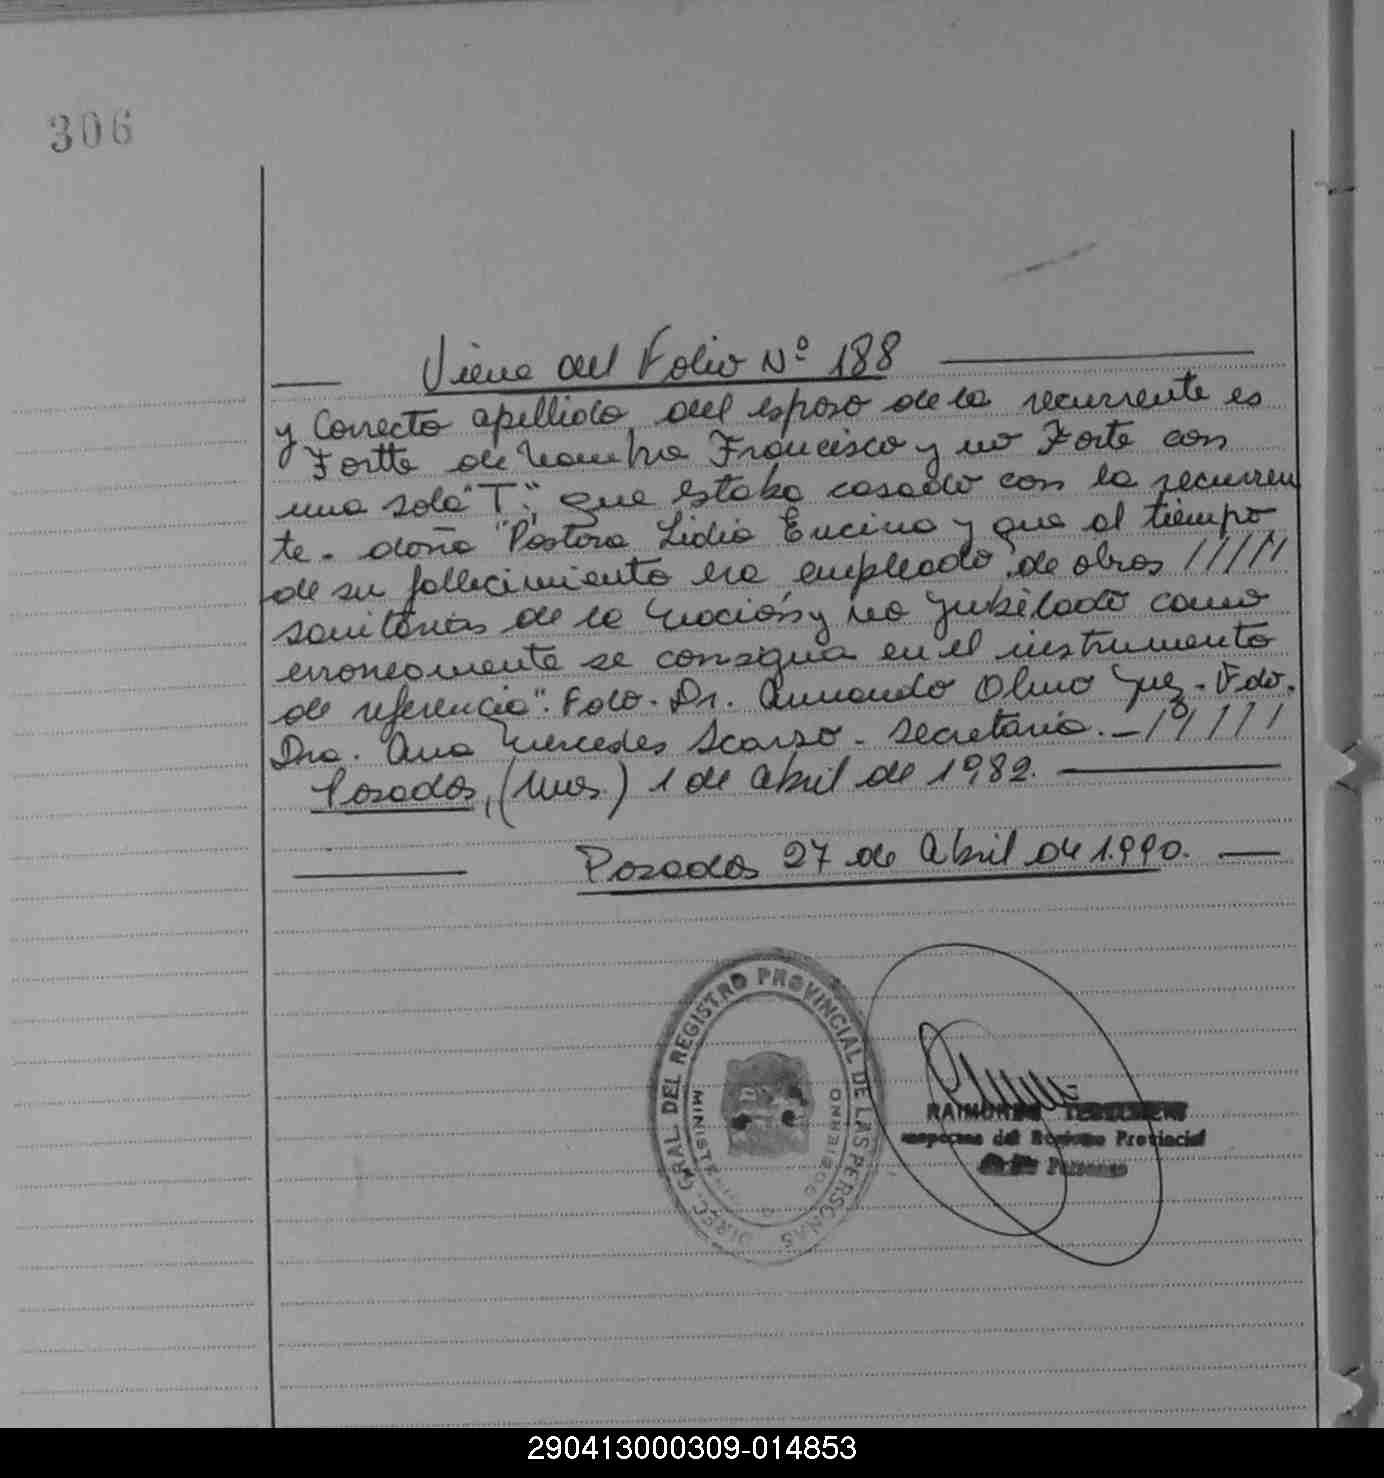 306
Viene del Folio Nº 188
y Correcto apellido del esposo de la recurrente es
Fortte de nombre Francisco y no Forte con
una sola "T", que estaba casado con la recurren
te. doña Pastora Lidia Encina y que al tiempo
de su fallecimiento era empleado de obras /////
sanitarias de la nación y no jubilado como
erroneamente se consigna en el instrumento
de referencia". Fdo. Dr. Armando Olmo Juez. Fdo.
Dra. Ana Mercedes Scarso. Secretaria. - /////
Posadas, (Mnes.) 1 de abril de 1982.
Posadas 27 de Abril de 1.990.
DIREC. GRAL. DEL REGISTRO PROVINCIAL DE LAS PERSONAS
MINISTERIO GOBIERNO
RAIMUNDO
del Registro Provincial
de las Personas
290413000309-014853